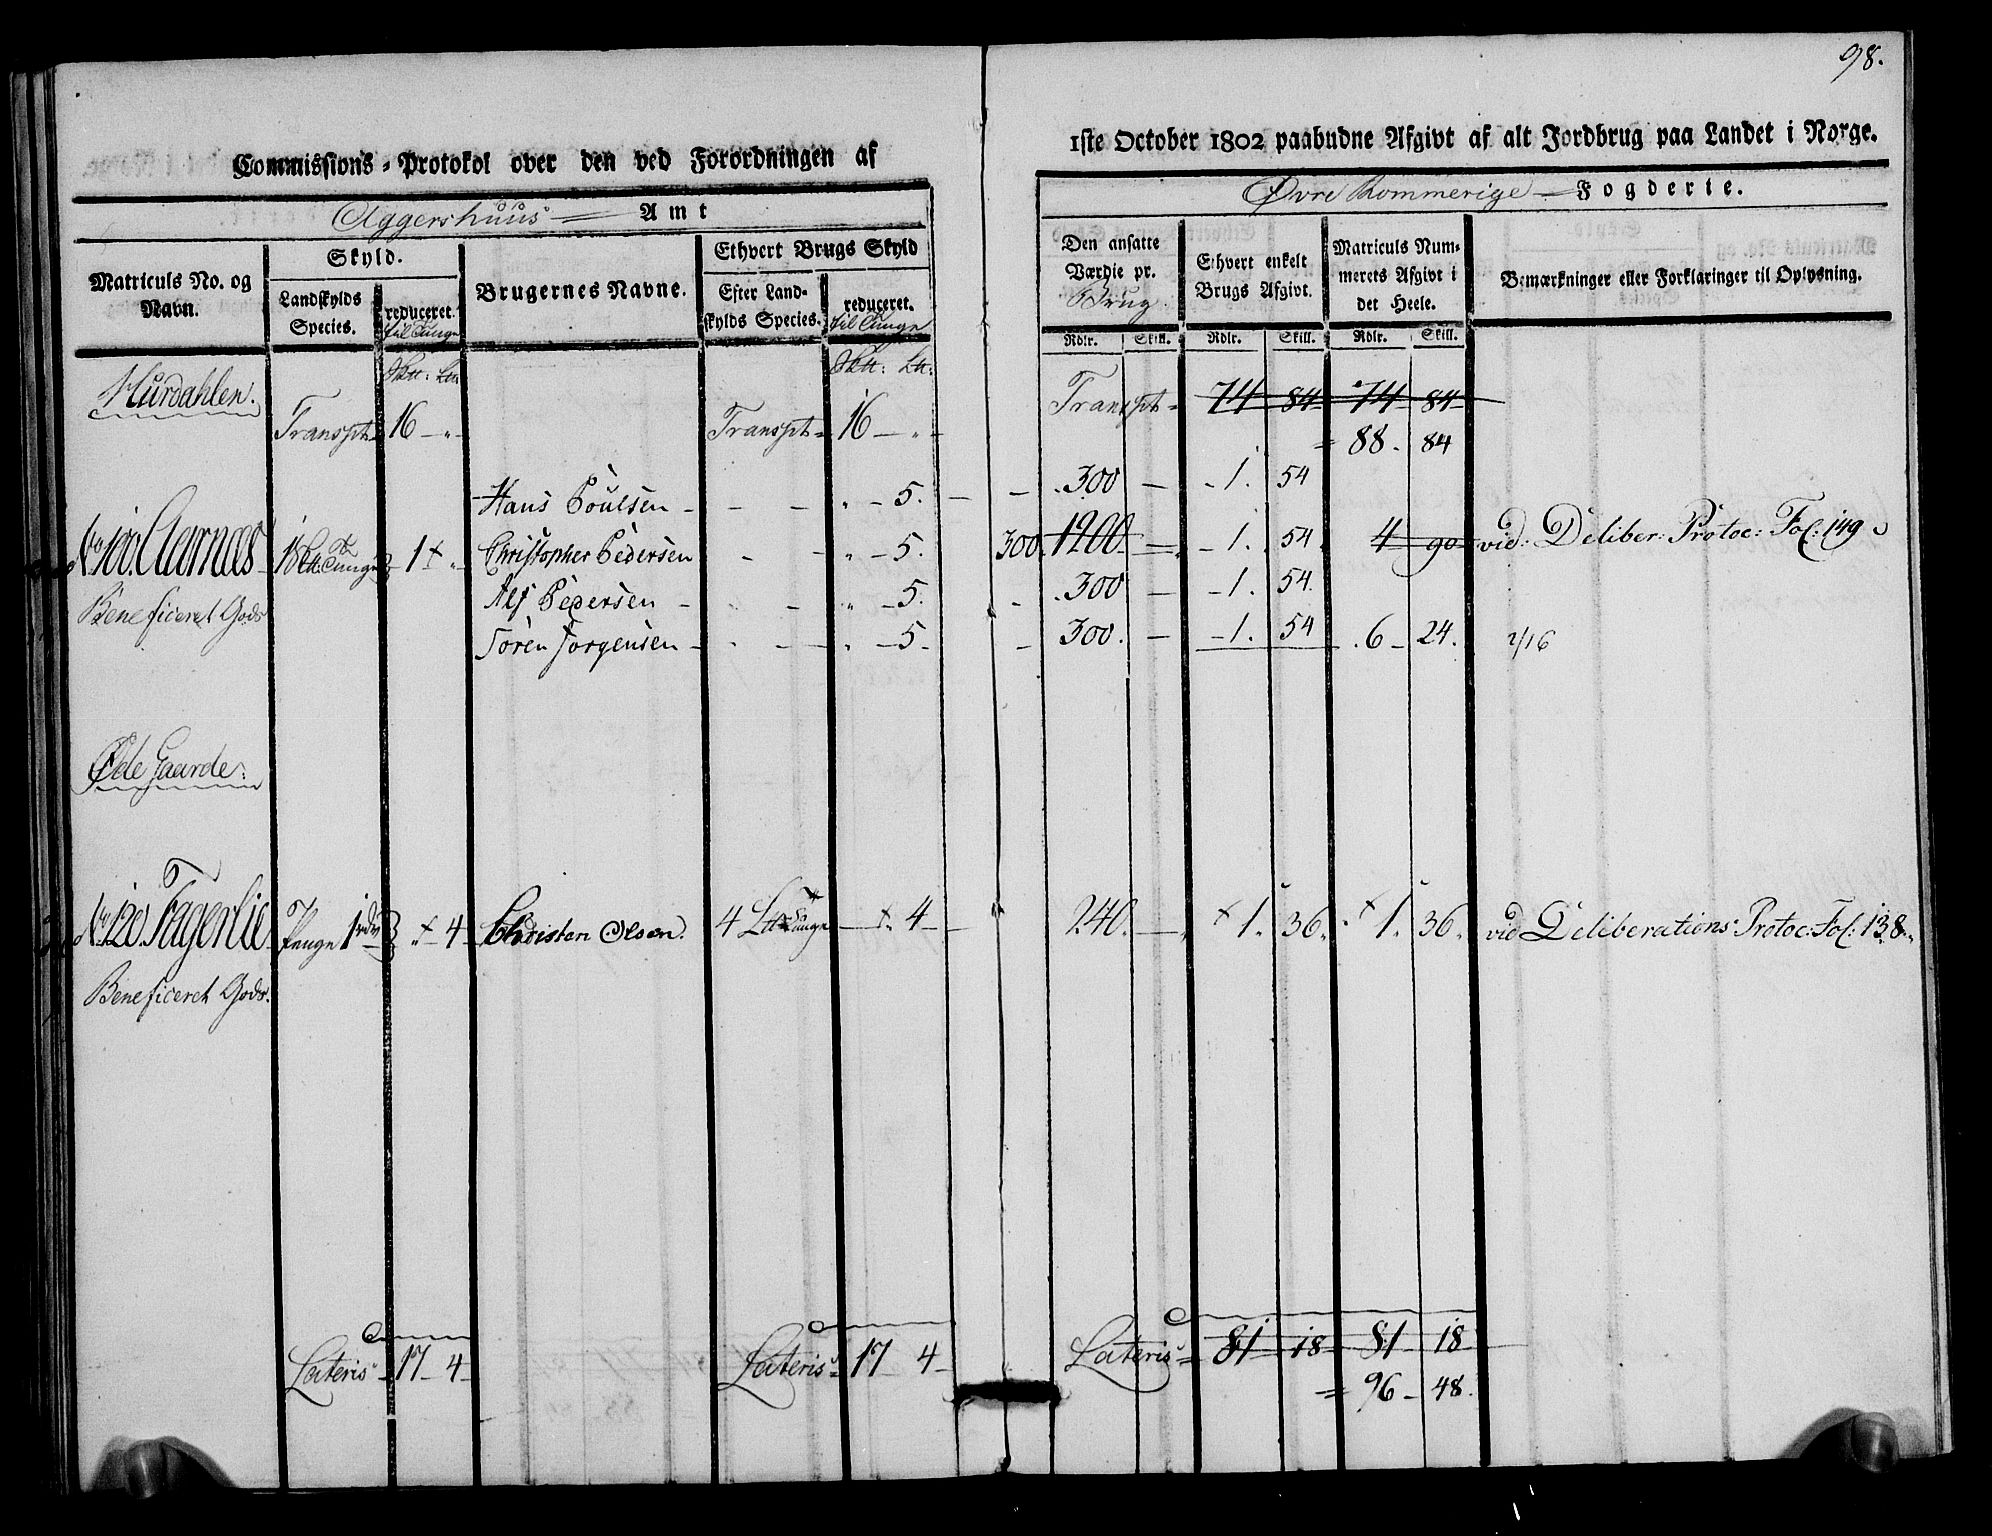 98.
Commissions-Protokol over den ved Forordningen af
1ste October 1802 paabudne Afgivt af alt Jordbrug paa Landet i Norge.
Aggershuus Amt
Øvre Rommerige Fogderie.
Matriculs No. og Navn.
Skyld.
Landskylds Species.
reduceret til Tunge
Brugernes Navne.
Ethvert Brugs Skyld
Efter Landskylds Species.
reduceret. til Tunge
Den ansatte Værdie pr. Brug
Ethvert enkelt Brugs Afgivt.
Matriculs Nummerets Afgivt i det Heele.
Bemærkninger eller Forklaringer til Oplysning.
Rdlr. Skill. Rdlr. Skill. Rdlr. Skill.
Hurdahlen.
Transpt 16 — „ Transpt 16 — „ Transpt 74 84 74 84
= 88. 84
Hans Poulsen - - - „ - 5. — - 300 — 1. 54
No 100. Aarnæs 1 + „ Christopher Pedersen - „ - 5. 300 1200 — 1. 54 4 90 vid: Deliber: Protoc: Fol: 149
Beneficeret Gods
Alf Pedersen - - „ - 5. - 300 — 1. 54.
Sören Jorgensen - - - „ - 5. - 300. — 1. 54 6 24. 2/16
Øde Gaarde:
No 120. Fagerlie Penge 1 rdr „ + 4 Christen Olsen. 4 Lt Tunge — + 4 — 240. — + 1. 36. + 1. 36. vid Deliberations Protoc: Fol: 138.
Beneficeret Gods.
Lateris 17 4 Lateris 17 4 Lateris 81 18 81 18
= 96 48.